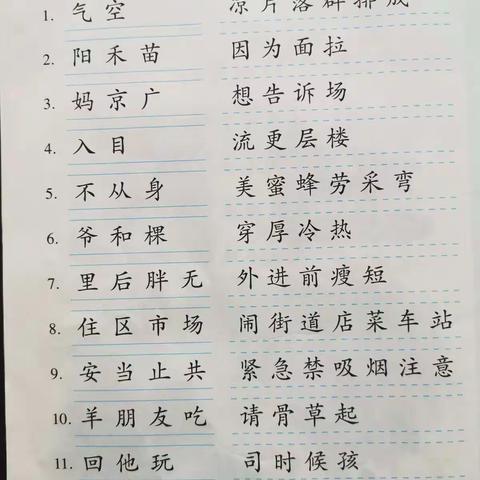 1. 气空 凉片落群排成
2. 阳禾苗 因为面拉
3. 妈京广 想告诉场
4. 入目 流更层楼
5. 不从身 美蜜蜂劳采弯
6. 爷和棵 穿厚冷热
7. 里后胖无 外进前瘦短
8. 住区市场 闹街道店菜车站
9. 安当止共 紧急禁吸烟注意
10. 羊朋友吃 请骨草起
11. 回他玩 司时候孩